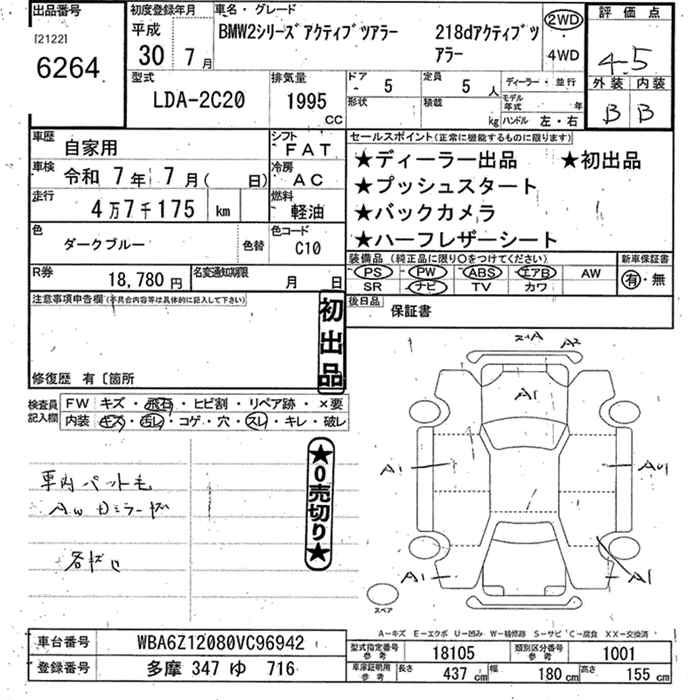 出品番号
[2122]
6264
初度登録年月
平成
30 7月
車名・グレード
BMW2シリーズ アクティブツアラー 218dアクティブツアラー
2WD
・
4WD
評価点
4.5
外装 内装
B B
型式
LDA-2C20
排気量
1995
CC
ドア
5
形状
定員
5 人
積載
kg
ディーラー・並行
モデル年式 年
ハンドル 左・右
車歴
自家用
シフト
FAT
車検
令和 7年 7月( 日)
冷房
AC
走行
4万7千175 km
燃料
軽油
色
ダークブルー
色替
色コード
C10
R券
18,780 円
名変通知期限
月 日
セールスポイント(正常に機能するものに限ります)
★ディーラー出品 ★初出品
★プッシュスタート
★バックカメラ
★ハーフレザーシート
装備品(純正品に限り○をつけてください)
PS PW ABS エアB AW
SR ナビ TV カワ
新車保証書
有・無
後日品
保証書
注意事項申告欄(不具合内容等は具体的に記入して下さい)
初出品
修復歴 有〔箇所
検査員記入欄
FW キズ・飛石・ヒビ割・リペア跡・×要
内装 キズ・汚レ・コゲ・穴・スレ・キレ・破レ
車内ペット毛
AWドミラーガ
各ガ
★0売切り★
A A2
A1
A1
A1
A1
スペア
A-キズ E-エクボ U-凹み W-補修跡 S-サビ C-腐食 XX-交換済
車台番号
WBA6Z12080VC96942
登録番号
多摩 347 ゆ 716
型式指定番号
参考
18105
類別区分番号
参考
1001
車庫証明用
参考
長さ 437 cm 幅 180 cm 高さ 155 cm